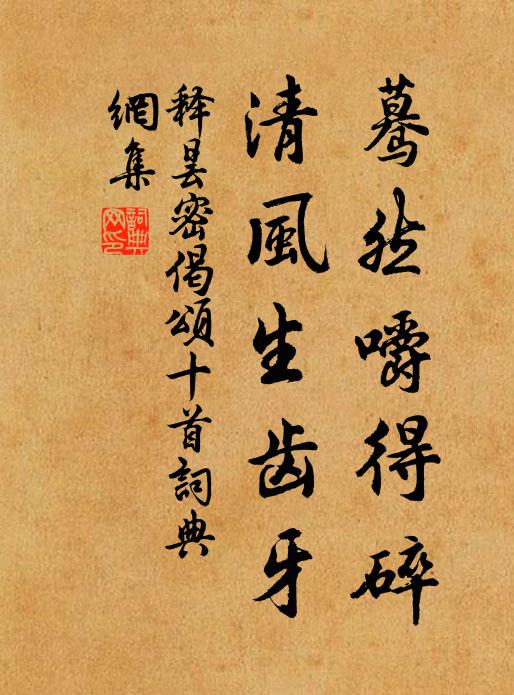 蓦然嚼得碎
清風生齿牙
释昙密偈頌十首詞典
網集
詞典
网印